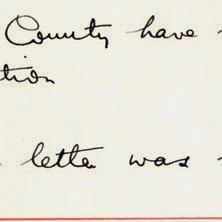 County have
tion
letter was